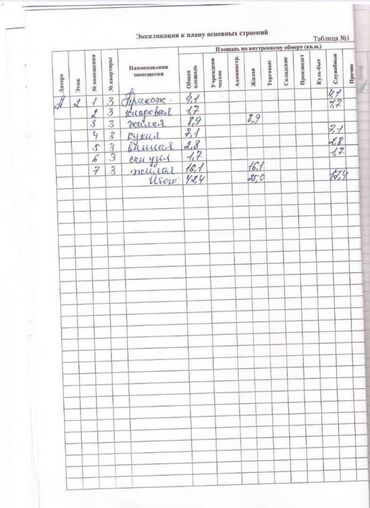 Экспликация к плану основных строений
Таблица №1
Площадь по внутреннему обмеру (кв.м.)
Литера Этаж № помещения № квартиры Наименование помещения Общая площадь Учрежденческие Администр. Жилая Торговые Складские Производст Культ-быт Служебные Прочие
А 2 1 3 Прихож. 4,1 4,1
2 3 кладовая 1,7 1,7
3 3 жилая 8,9 8,9
4 3 кухня 7,1 7,1
5 3 ванная 2,8 2,8
6 3 сан узел 1,7 1,7
7 3 жилая 16,1 16,1
Итого: 42,4 25,0 17,4